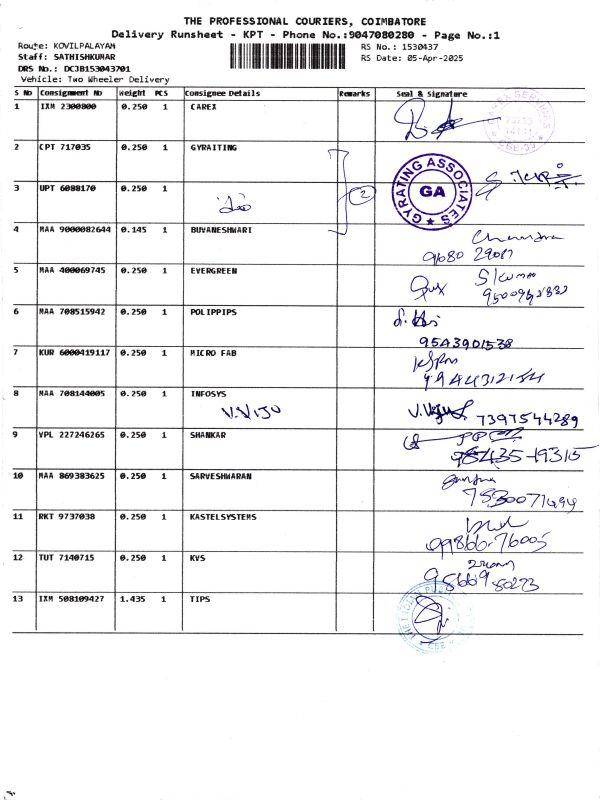 THE PROFESSIONAL COURIERS, COIMBATORE
Delivery Runsheet - KPT - Phone No.:9047080280 - Page No.:1
Route: KOVILPALAYAM
RS No.: 1530437
Staff: SATHISHKUMAR
RS Date: 05-Apr-2025
DRS No.: DCJB153043701
Vehicle: Two Wheeler Delivery
S No Consignment No Weight PCS Consignee Details Remarks Seal & Signature
1 IXM 2300800 0.250 1 CAREX
2 CPT 717035 0.250 1 GYRAITING
GYRATING ASSOCIATES
GA
3 UPT 6088170 0.250 1
2
4 MAA 9000082644 0.145 1 BUVANESHWARI
5 MAA 400069745 0.250 1 EVERGREEN
6 MAA 708515942 0.250 1 POLIPPIPS
9543901538
7 KUR 6000419117 0.250 1 MICRO FAB
8 MAA 708144005 0.250 1 INFOSYS
V.VIJU
7397544289
9 VPL 227246265 0.250 1 SHANKAR
10 MAA 869383625 0.250 1 SARVESHWARAN
11 RKT 9737038 0.250 1 KASTELSYSTEMS
99866-76005
12 TUT 7140715 0.250 1 KVS
13 IXM 508109427 1.435 1 TIPS